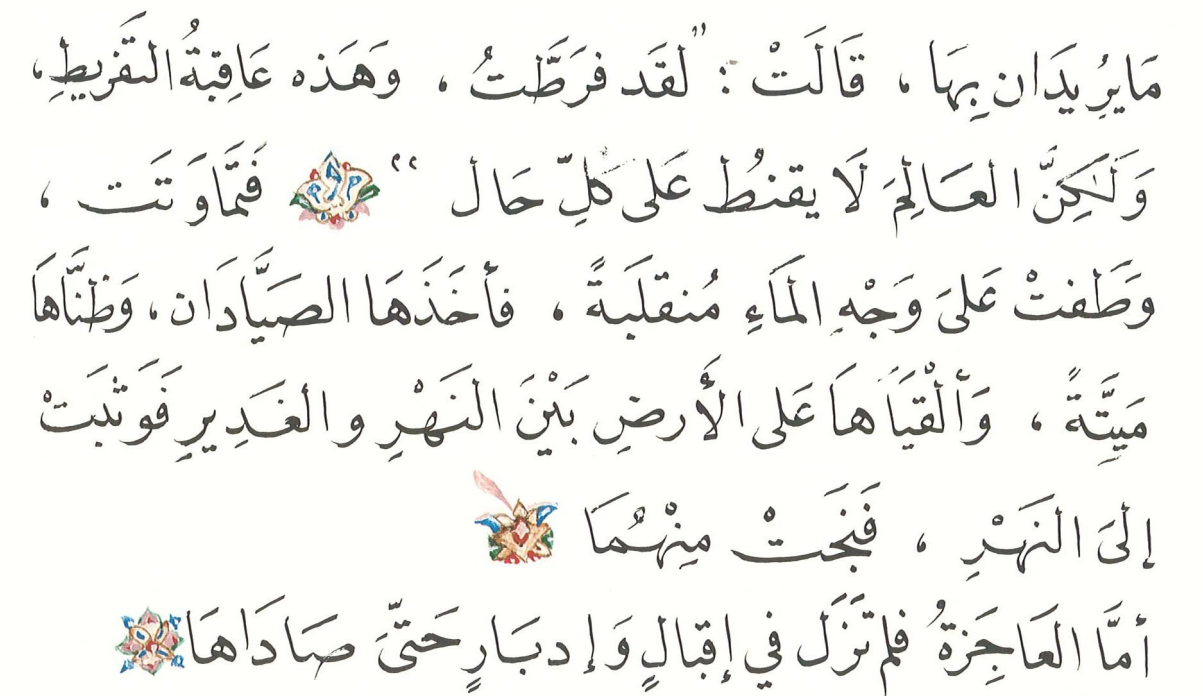 مَايرُيدَان بِهَا ، قَالَتْ : "لَقَد فرَطَّتُ ، وَهَذه عَاقِبَةُ التَفرْيطِ،
وَلَكِنَّ العَالِمَ لَا يقنطُ عَلى كلِّ حَال " فَتَمَاوَتَت ،
وَطَفتْ عَلىَ وَجْهِ المَاءِ مُنقلَبَةً ، فأخَذَهَا الصَيَّادَان ، وَظنَّاهَا
مَيِتَّةً ، وَألْقَيَاهَا عَلى الأَرضِ بَيْنَ النَهْرِ والغَدِيرِ فَوَثبَتْ
إلىَ النَهْرِ ، فَنجَتْ مِنْهُمَا
أمَّا العَاجِزَةُ فلم تَزَل في إقبَالٍ وَإدبَارٍ حَتىَّ صَادَاهَا